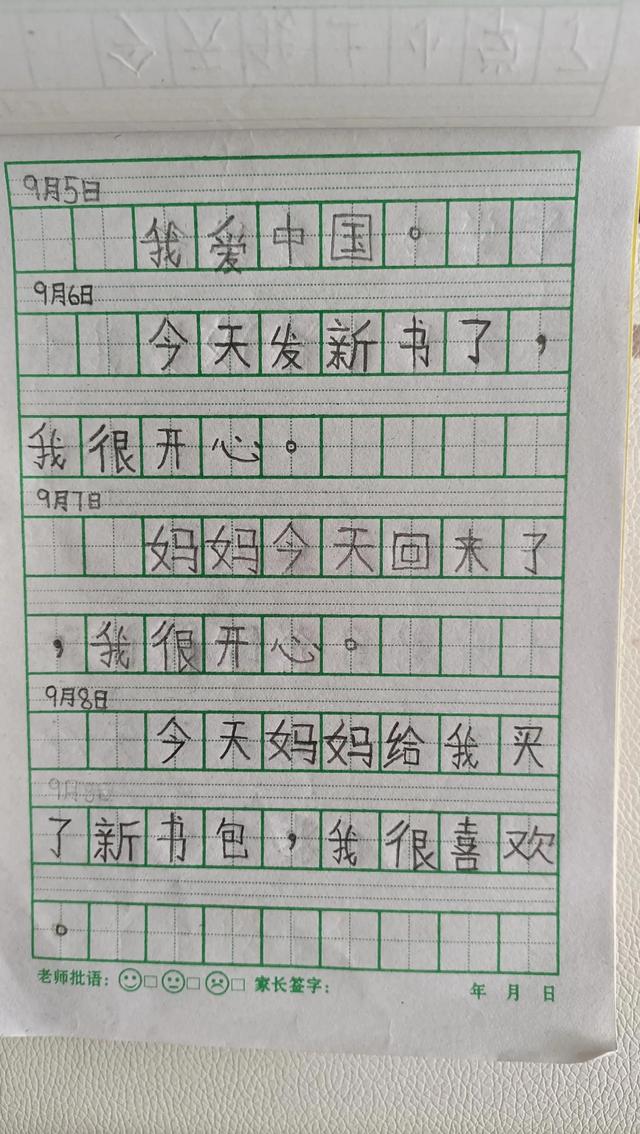 9月5日
我爱中国。
9月6日
今天发新书了，
我很开心。
9月7日
妈妈今天回来了
，我很开心。
9月8日
今天妈妈给我买
了新书包，我很喜欢
。
老师批语： 家长签字： 年 月 日